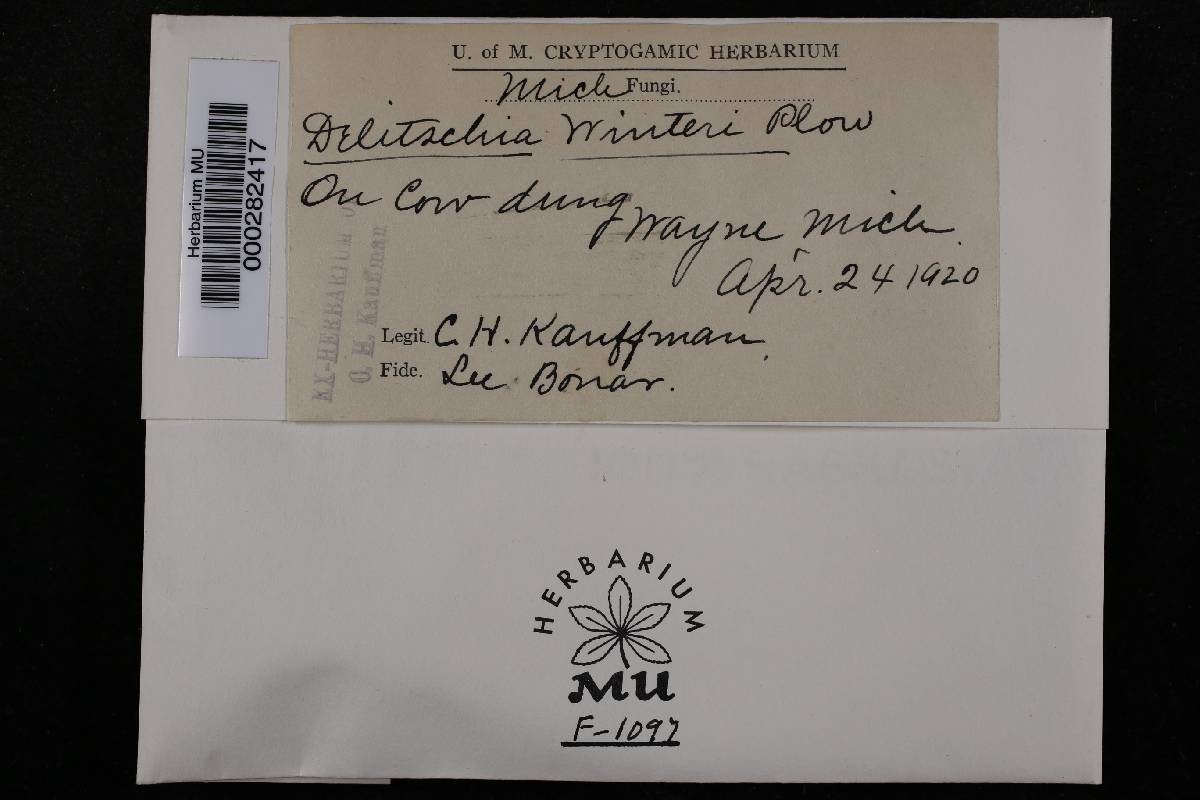 U. of M. CRYPTOGAMIC HERBARIUM
Mich Fungi.
Delitschia Winteri Plow
On Cow dung
Wayne Mich.
Apr. 24 1920
Legit. C. H. Kauffman.
Fide. Lee Bonar.
EX-HERBARIUM OF
C. H. Kauffman
Herbarium MU
000282417
HERBARIUM
MU
F-1097